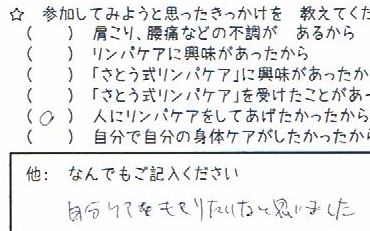 ☆ 参加してみようと思ったきっかけを 教えてくだ
( ) 肩こり、腰痛などの不調が あるから
( ) リンパケアに興味があったから
( ) 「さとう式リンパケア」に興味があったか
( ) 「さとう式リンパケア」を受けたことがあっ
(○) 人にリンパケアをしてあげたかったから
( ) 自分で自分の身体ケアがしたかったから
他: なんでもご記入ください
自分ケアをもとりたいなと思いました